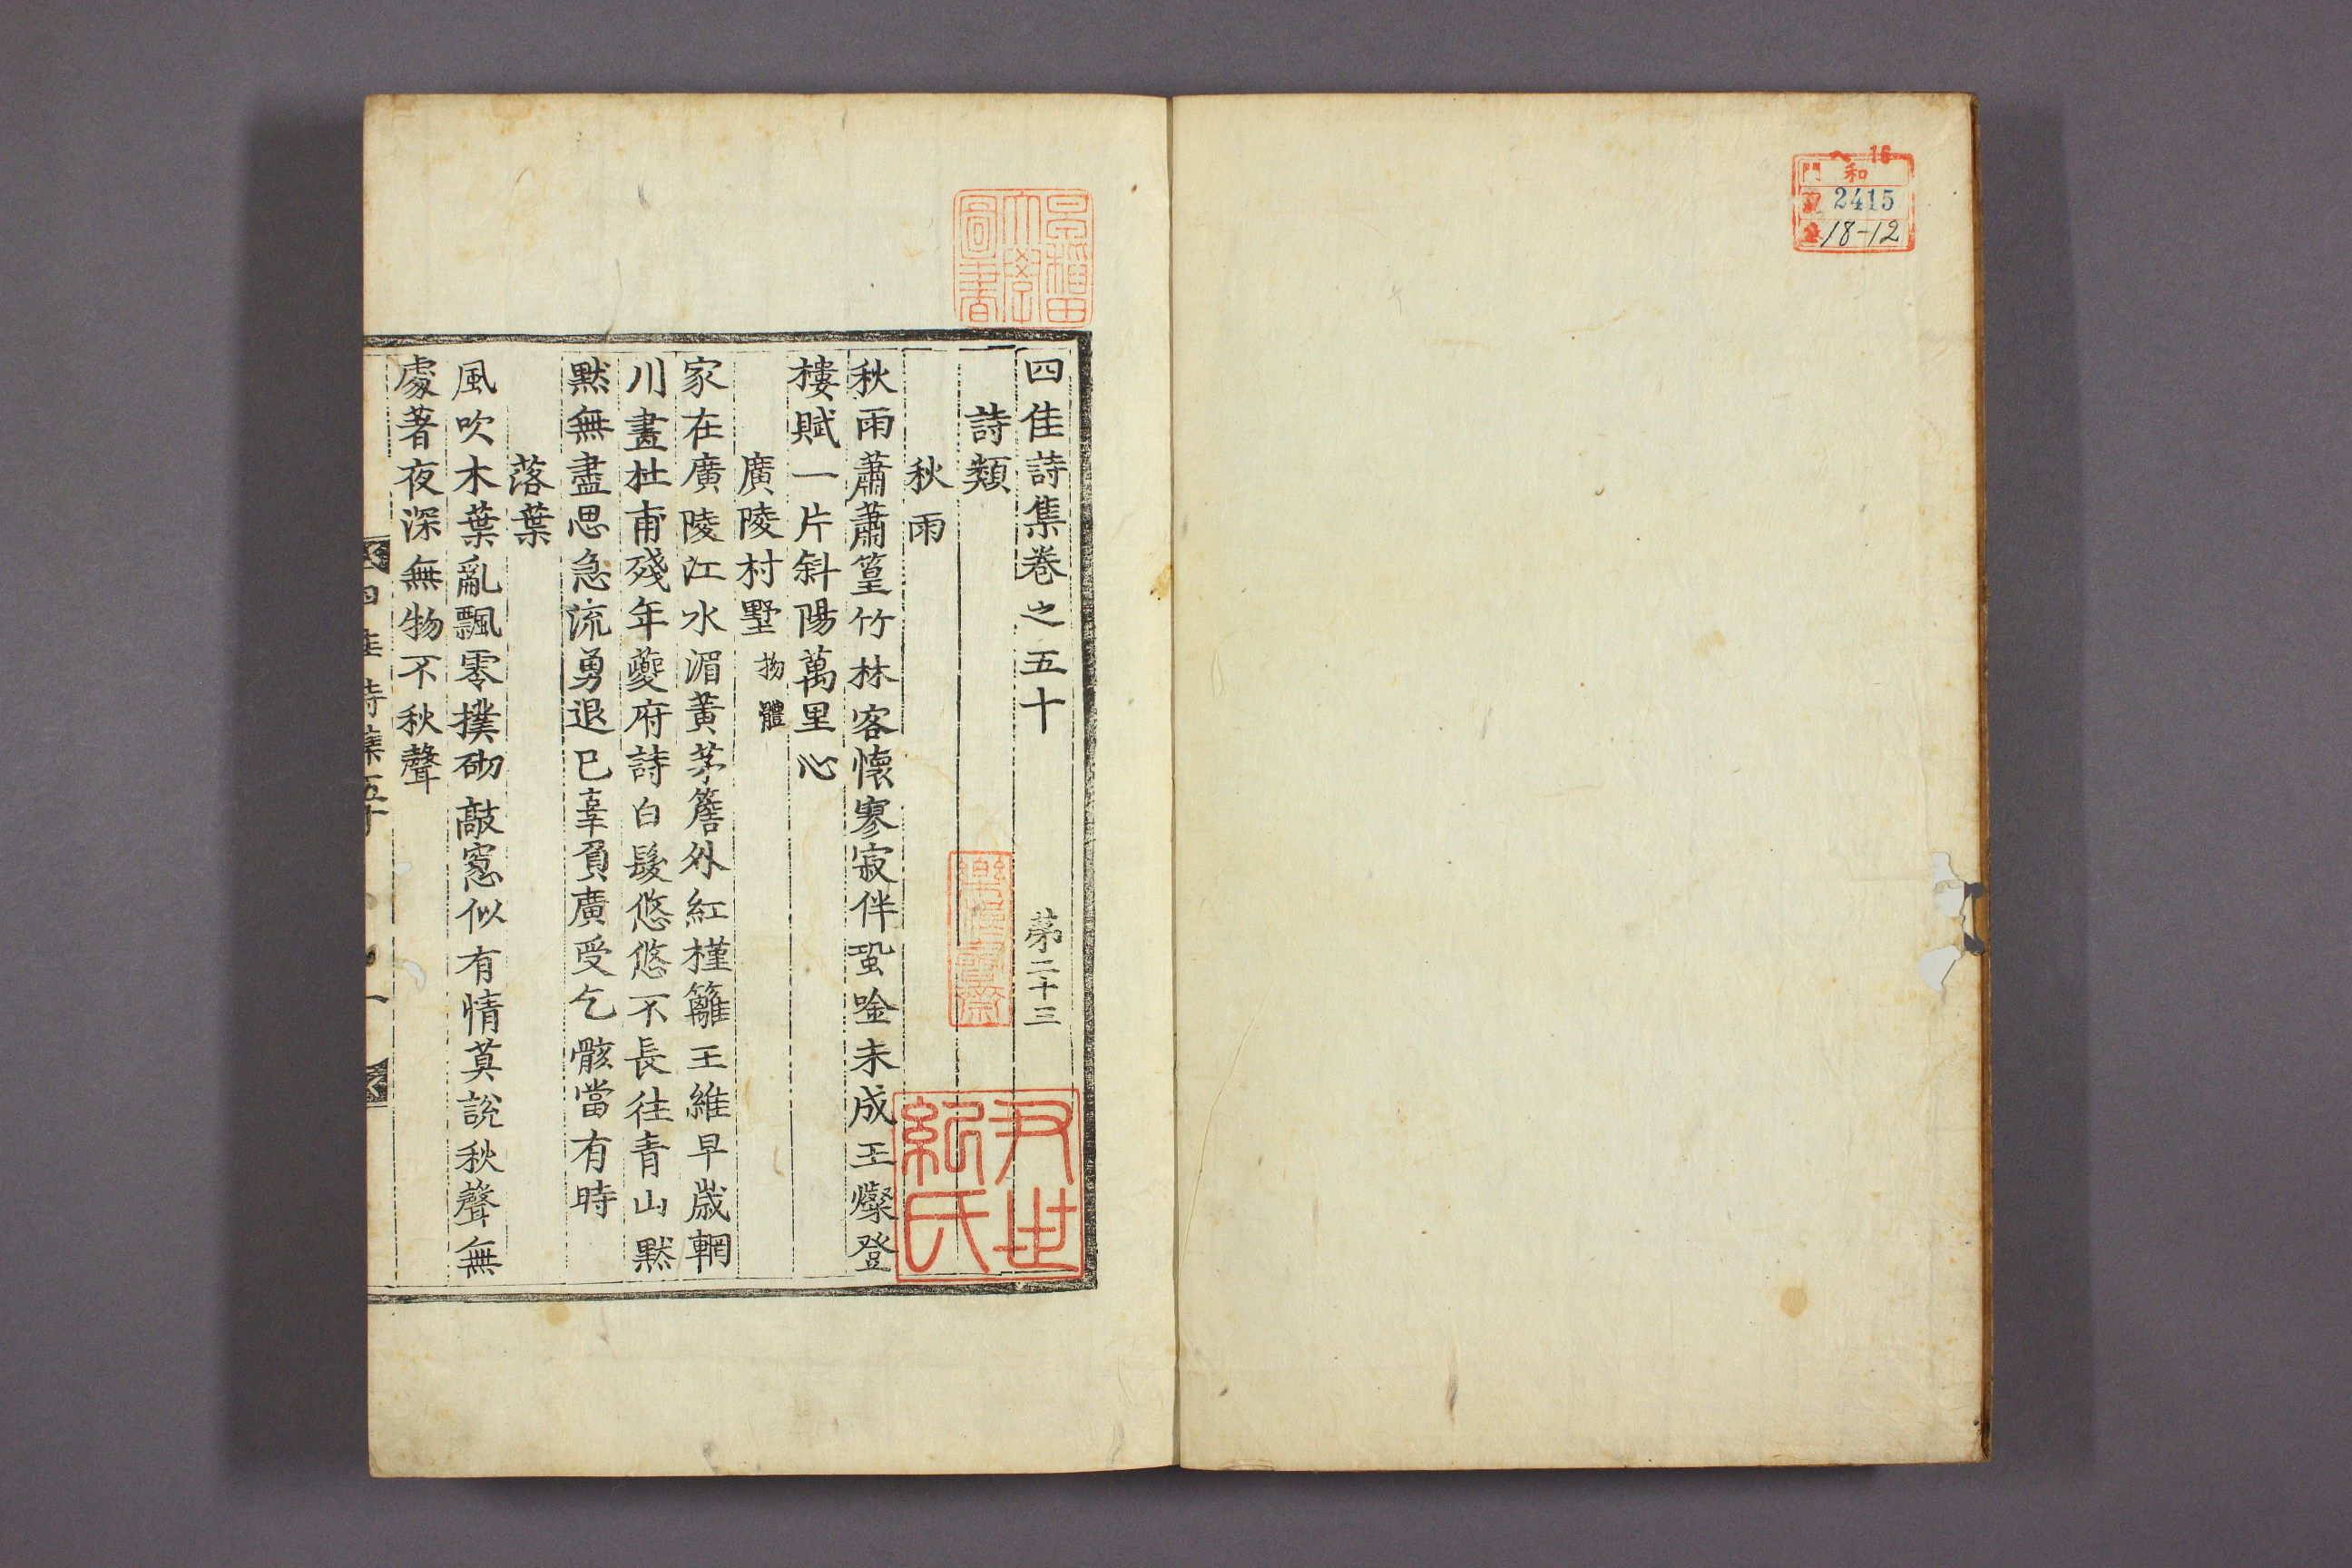 16
門 和
2415
18-12
早稲田大學圖書
四佳詩集卷之五十 第二十三
詩類
秋雨
秋雨蕭蕭篁竹林客懷寥寂伴蛩唫未成王燦登
樓賦一片斜陽萬里心
廣陵村墅 拗體
家在廣陵江水湄黃茅簷外紅槿籬王維早歲輞
川畫杜甫殘年夔府詩白髮悠悠不長往青山默
默無盡思急流勇退已辜負廣受乞骸當有時
落葉
風吹木葉亂飄零撲砌敲窓似有情莫說秋聲無
處著夜深無物不秋聲
四佳詩集五十 一
尹世紀氏